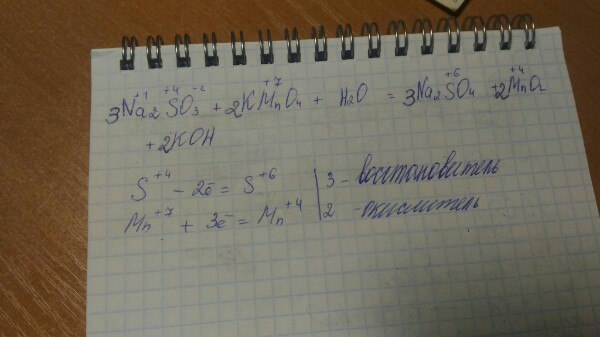 3Na₂⁺¹S⁺⁴O₃⁻² + 2KMn⁺⁷O₄ + H₂O = 3Na₂S⁺⁶O₄ + 2Mn⁺⁴O₂
+ 2KOH
S⁺⁴ - 2e⁻ = S⁺⁶ | 3 - восстановитель
Mn⁺⁷ + 3e⁻ = Mn⁺⁴ | 2 - окислитель